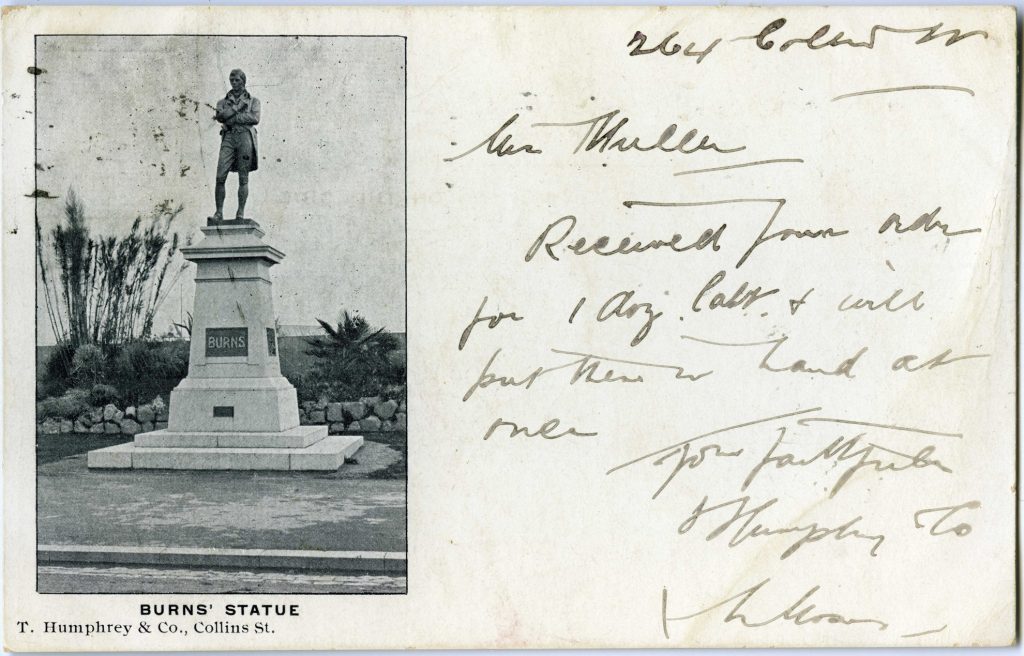 BURNS
BURNS' STATUE
T. Humphrey & Co., Collins St.
264 Collins St
Muller
Received your order
for 1 doz. Cabt. & will
put them in hand at
once
Yours faithfully
T Humphrey Co